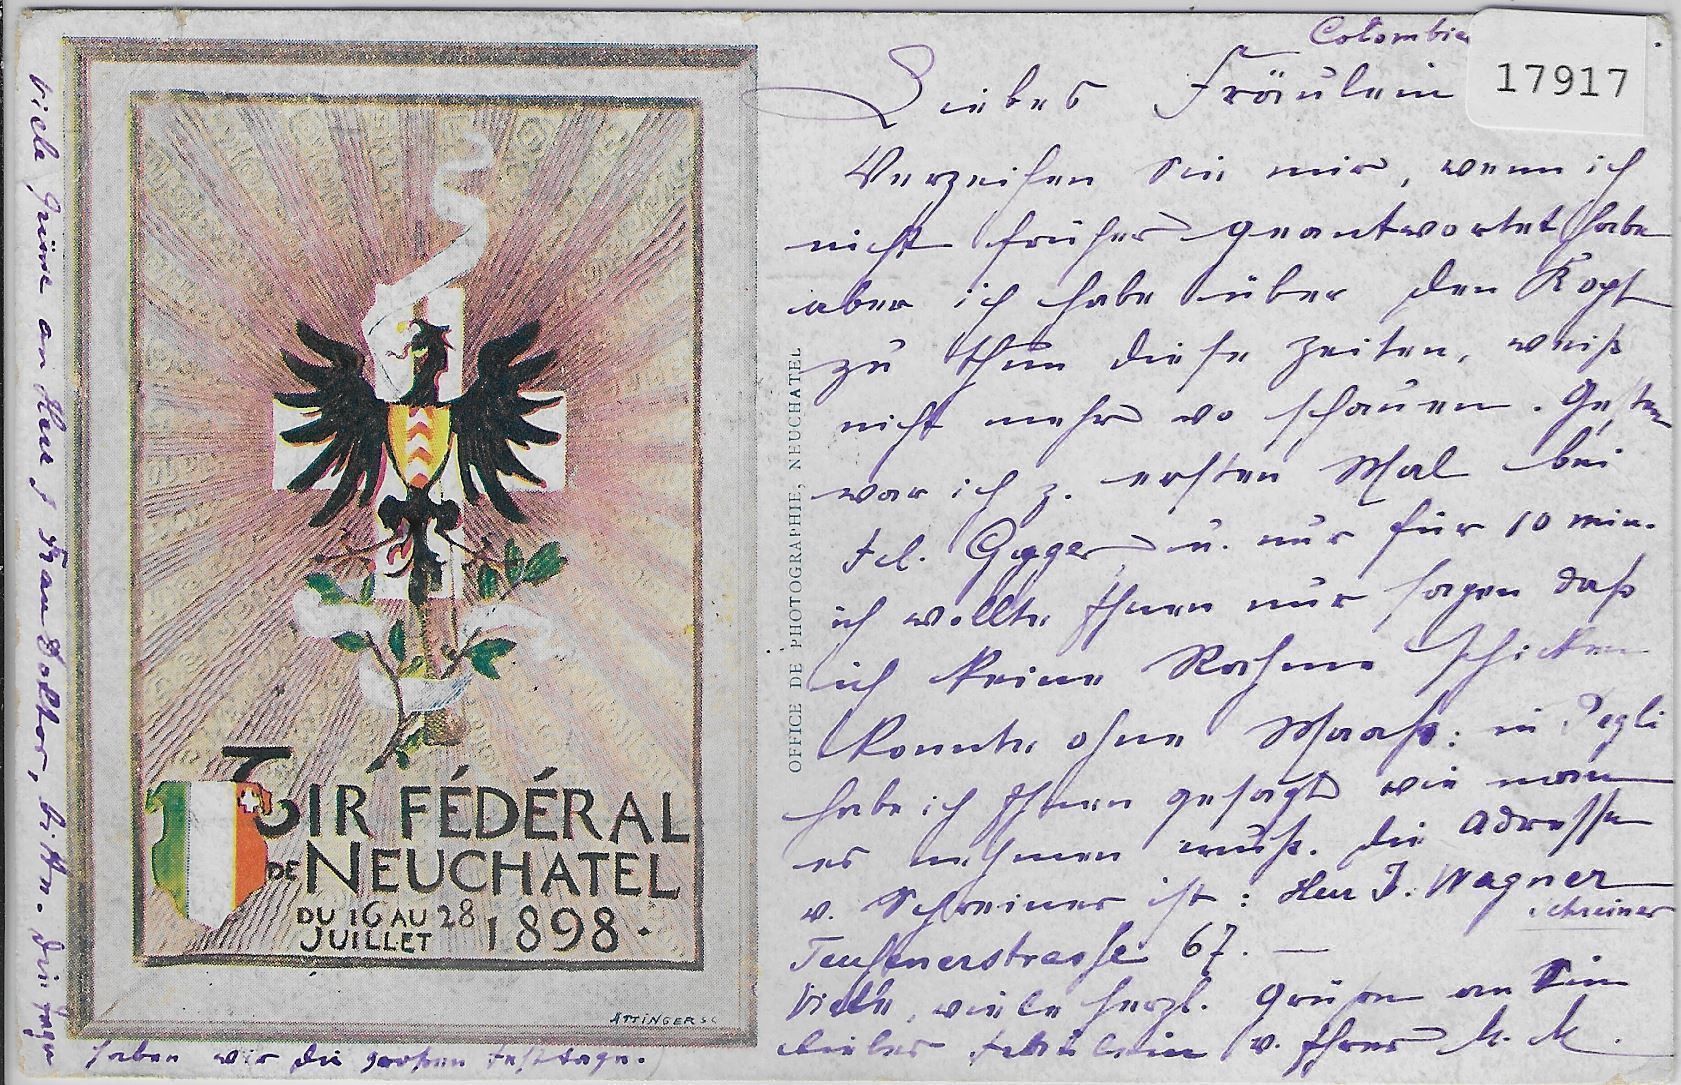 Colombier
17917
Liebes Fräulein
Verzeihen Sie mir, wenn ich
nicht früher geantwortet habe
aber ich habe über den Kopf
zu thun diese Zeiten, weiß
nicht mehr wo schauen. Gestern
war ich z. ersten Mal bei
Fel. Gyger u. nur für 10 min.
ich wollte Ihnen nur sagen daß
ich keine Rahme schicken
konnte ohne Maaß: in Pegli
habe ich Ihnen gesagt wie man
es nehmen muß. Die Adresse
v. Schreiner ist: Herr J. Wagner
Schreiner
Teufenerstrasse 67. —
Viele, viele herzl. Grüßen an Sie
liebes Fräulein v. Ihrer M. M.
Viele Grüsse an Herr & Frau Doktor, bitte. Die Tage
haben wir die großen Festtage.
OFFICE DE PHOTOGRAPHIE, NEUCHATEL
TIR FÉDÉRAL
DE NEUCHATEL
DU 16 AU 28
JUILLET 1898.
ATTINGER SC